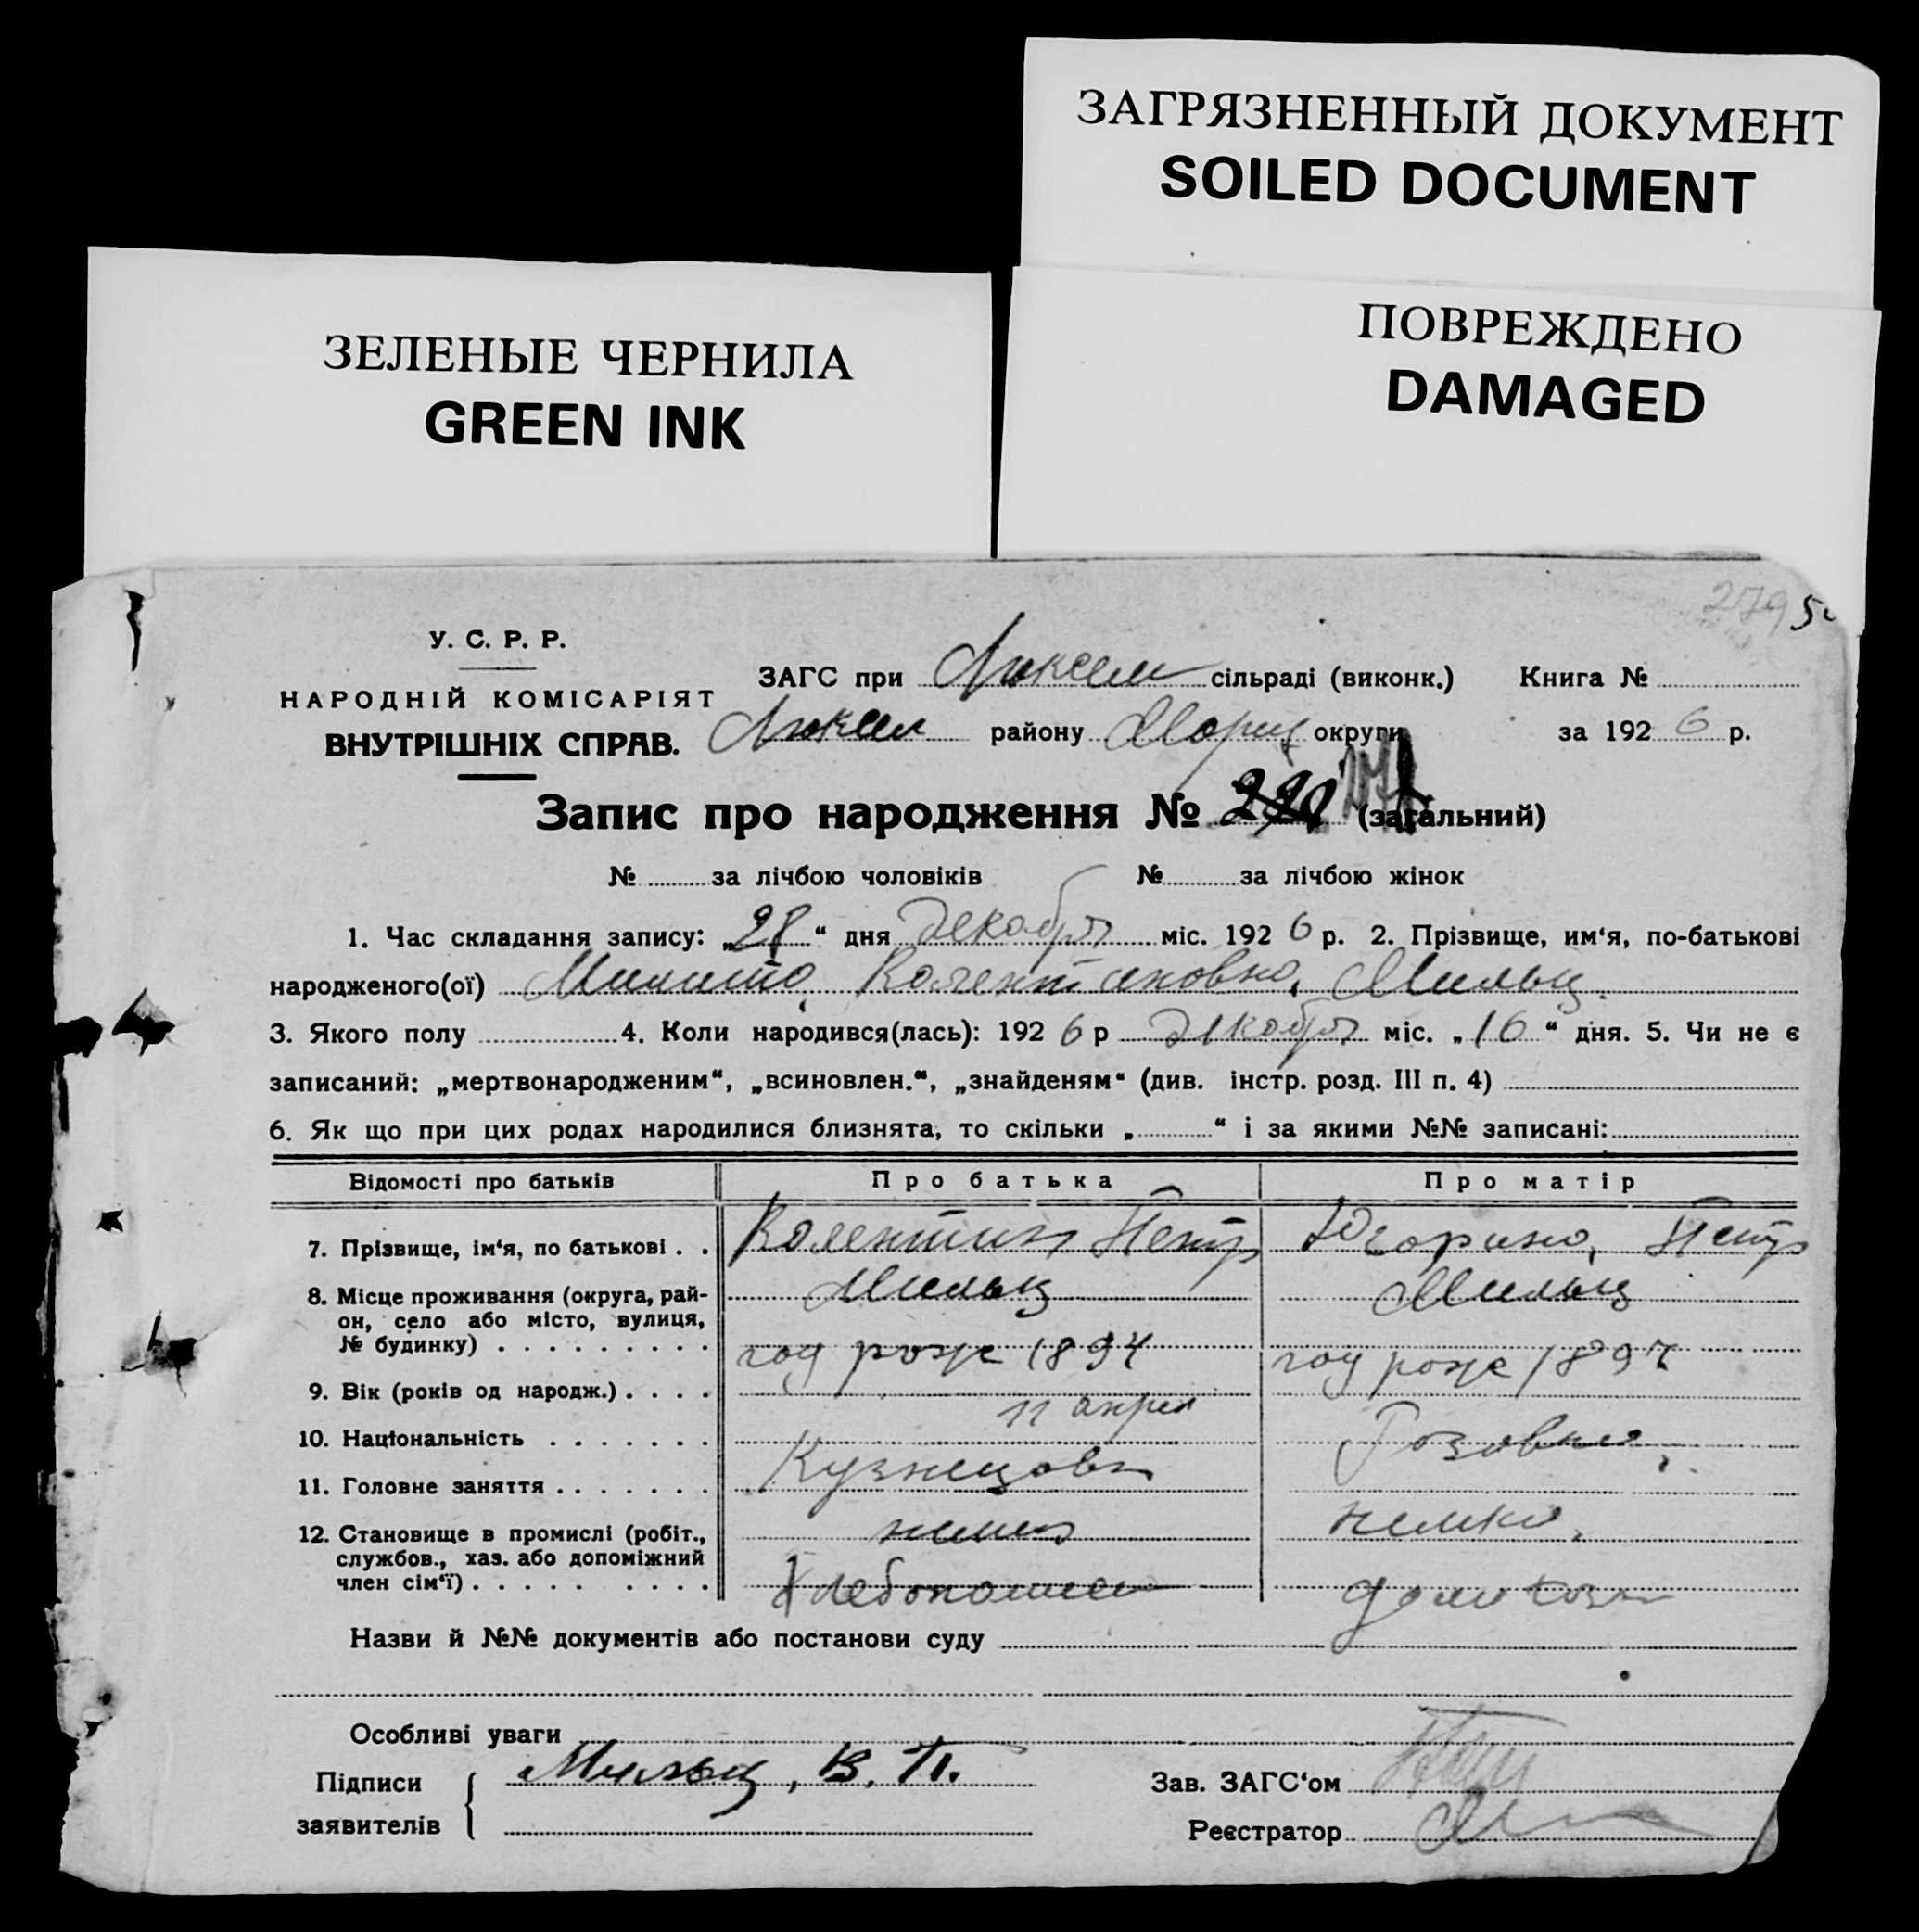 ЗАГРЯЗНЕННЫЙ ДОКУМЕНТ
SOILED DOCUMENT
ЗЕЛЕНЫЕ ЧЕРНИЛА
GREEN INK
ПОВРЕЖДЕНО
DAMAGED
279
У. С. Р. Р.
НАРОДНІЙ КОМІСАРІЯТ
ВНУТРІШНІХ СПРАВ.
ЗАГС при Люксем сільраді (виконк.) Книга №
Люксем району Мариц округи за 1926 р.
Запис про народження № 220 (загальний)
№ за лічбою чоловіків № за лічбою жінок
1. Час складання запису: „28“ дня декабря міс. 1926 р. 2. Прізвище, им‘я, по-батькові
народженого(ої) Валентиновна, Мильц.
3. Якого полу 4. Коли народився(лась): 1926 р декабря міс. „16“ дня. 5. Чи не є
записаний: „мертвонародженим“, „всиновлен.“, „знайденям“ (див. інстр. розд. III п. 4)
6. Як що при цих родах народилися близнята, то скільки „ “ і за якими №№ записані:
Відомості про батьків Про батька Про матір
7. Прізвище, ім‘я, по батькові . . Валентин Петр Петр
8. Місце проживання (округа, рай- Мильц Мильц
он, село або місто, вулиця,
№ будинку) . . . . . . . . . год рож 1894 год рож 1897
9. Вік (років од народж.) . . . .
11 апрел
10. Національність . . . . . . . Розовка,
11. Головне заняття . . . . . . . Кузнецовк
12. Становище в промислі (робіт., немец немка,
службов., хаз. або допоміжний
член сім‘ї) . . . . . . . . . Хлебопашец домохоз
Назви й №№ документів або постанови суду
Особливі уваги
Підписи Мильц, В. П. Зав. ЗАГС‘ом
заявителів Реєстратор